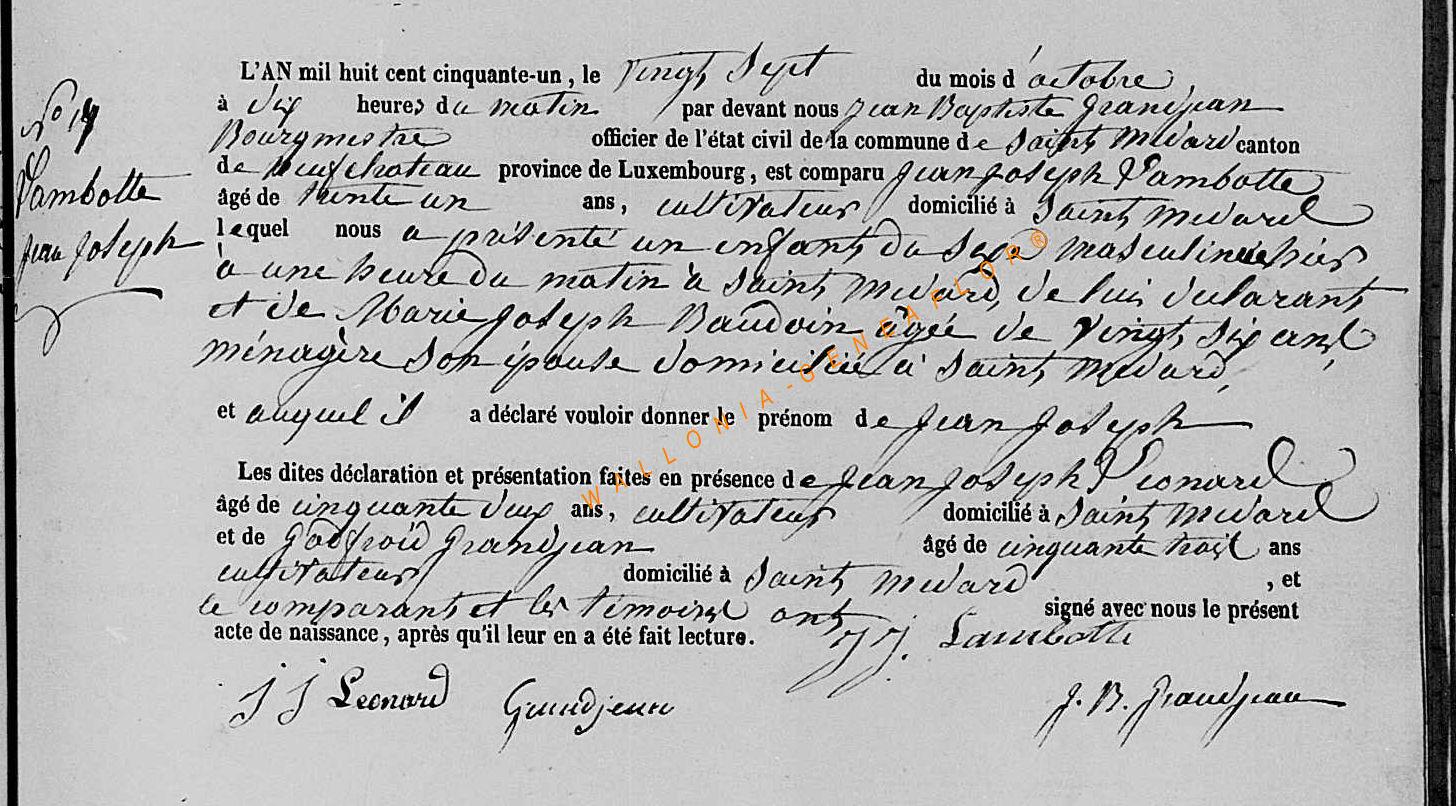 L'AN mil huit cent cinquante-un, le vingt sept du mois d'octobre
à dix heures du matin par devant nous Jean Baptiste Grandjean
Bourgmestre officier de l'état civil de la commune de Saint Médard canton
de Neufchateau province de Luxembourg, est comparu Jean Joseph Lambotte
âgé de trente un ans, cultivateur domicilié à Saint Médard
lequel nous a présenté un enfant du sexe masculin né hier
à une heure du matin à Saint Médard, de lui déclarant
et de Marie Joseph Baudoin âgée de vingt six ans,
ménagère son épouse domiciliée à Saint Médard,
et auquel il a déclaré vouloir donner le prénom de Jean Joseph
Les dites déclaration et présentation faites en présence de Jean Joseph Léonard
âgé de cinquante deux ans, cultivateur domicilié à Saint Médard
et de Godfroid Grandjean âgé de cinquante trois ans
cultivateur domicilié à Saint Médard, et
le comparant et les témoins ont signé avec nous le présent
acte de naissance, après qu'il leur en a été fait lecture.
J J. Lambotte
J J Leonard Grandjean J. B. Grandjean
No 19
Lambotte
Jean Joseph
WALLONIA-GENEAFLOR®